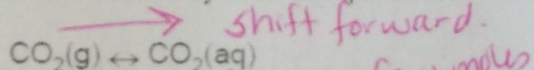 shift forward.
CO₂(g) ↔ CO₂(aq)
moles